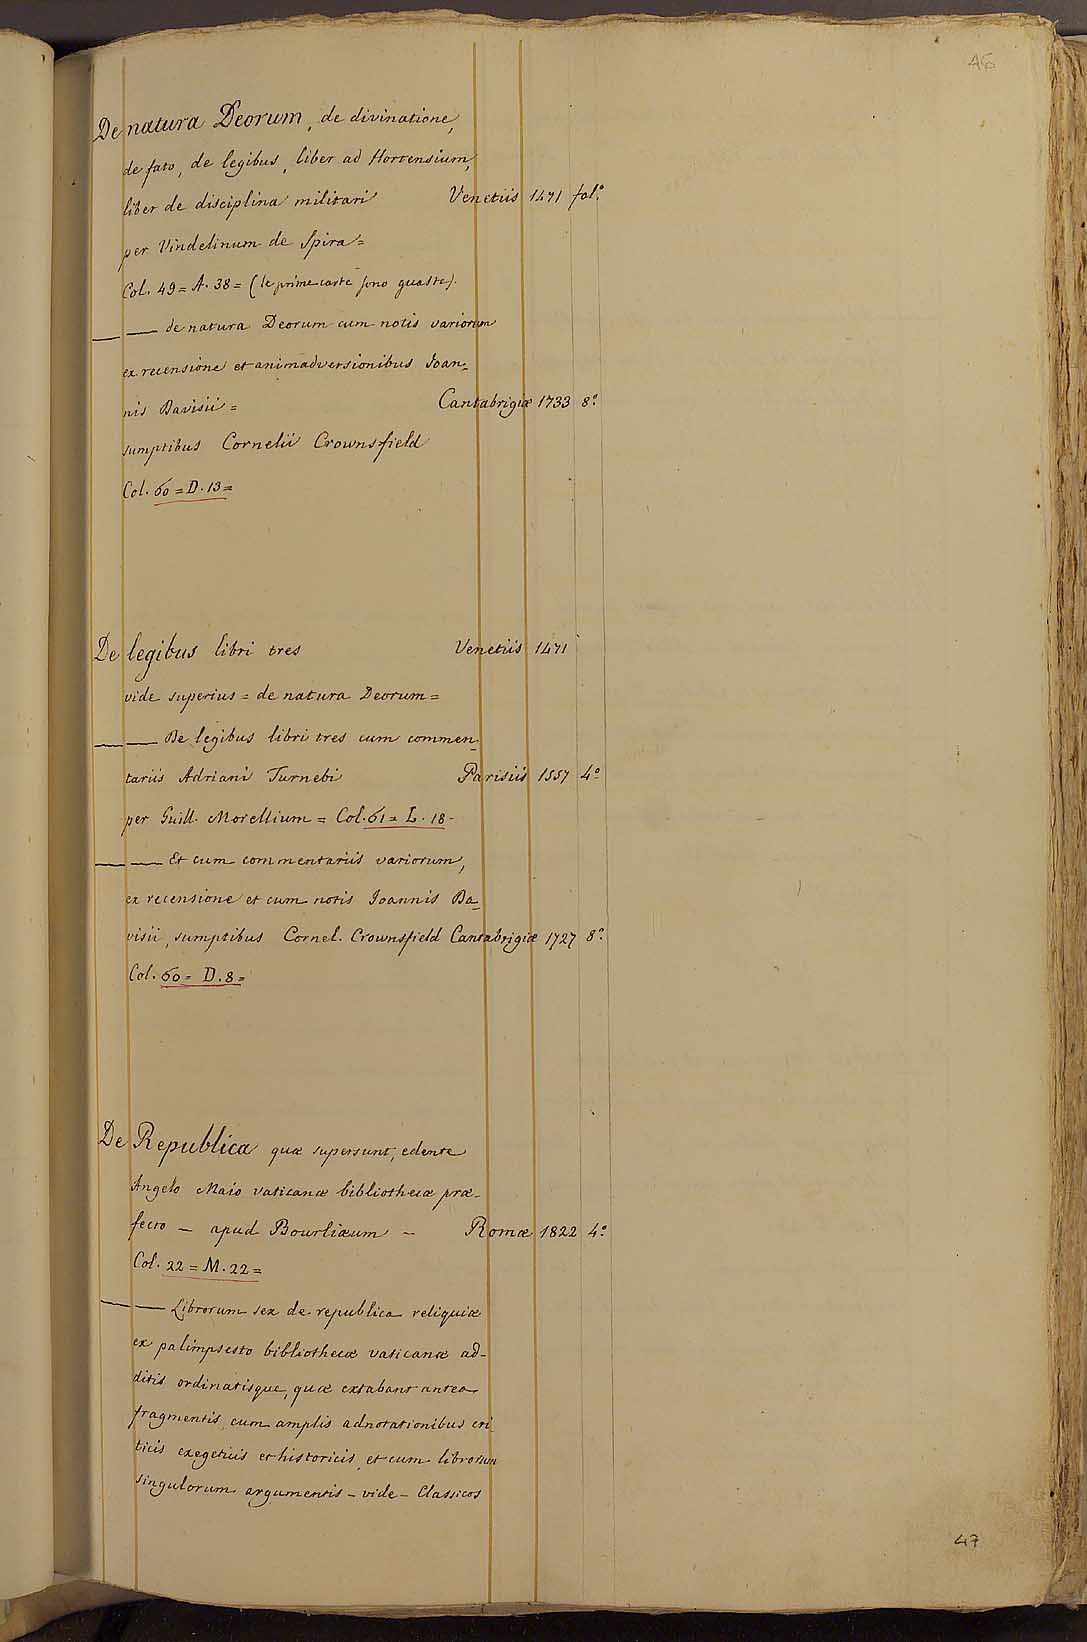 46
De natura Deorum, de divinatione,
de fato, de legibus, liber ad Hortensium,
liber de disciplina militari Venetiis 1471 fol.º
per Vindelinum de Spira =
Col. 49 = A. 38 = (le prime carte sono guaste).
—— de natura Deorum cum notis variorum
ex recensione et animadversionibus Joan=
nis Davisii = Cantabrigiæ 1733 8.º
sumptibus Cornelii Crownsfield
Col. 60 = D. 13 =
De legibus libri tres Venetiis 1471
vide superius = de natura Deorum =
—— De legibus libri tres cum commen=
tariis Adriani Turnebi Parisiis 1557 4º
per Guill. Morellium = Col. 61 = L. 18 -
—— Et cum commentariis variorum,
ex recensione et cum notis Joannis Da=
visii, sumptibus Cornel. Crownsfield Cantabrigiæ 1727 8.º
Col. 60 = D. 8 =
De Republica quæ supersunt, edente
Angelo Maio vaticanæ bibliothecæ præ-
fecto - apud Bourliæum - Romæ 1822 4.º
Col. 22 = M. 22 =
—— Librorum sex de republica reliquiæ
ex palimpsesto bibliothecæ vaticanæ ad-
ditis ordinatisque, quæ extabant antea
fragmentis, cum amplis adnotationibus cri-
ticis exegeticis et historicis, et cum librorum
singulorum argumentis - vide - Classicos
47